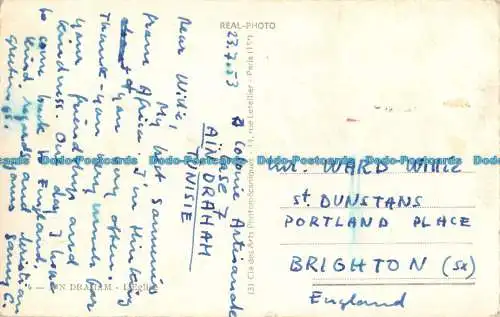 REAL-PHOTO
23.7.53
Colonie Artisanale
AÏN DRAHAM
TUNISIE
Dear Willie,
My best summers
from Africa. I'm thinking
of you very often.
Thank-you very much for
your friendship and
kindness. One day I hope
to come back to England.
Kind regards and christian
greetings
yours Samy C.
AÏN DRAHAM - L'Eglise
(3) Cie des Arts Photomécaniques, rue Letellier - Paris (15e)
Mr. WARD WILLIE
St. DUNSTANS
PORTLAND PLACE
BRIGHTON (Sx)
England
Dodo-Postcards
Dodo-Postcards
Dodo-Postcards
Dodo-Postcards
Dodo-Postcards
Dodo-Postcards